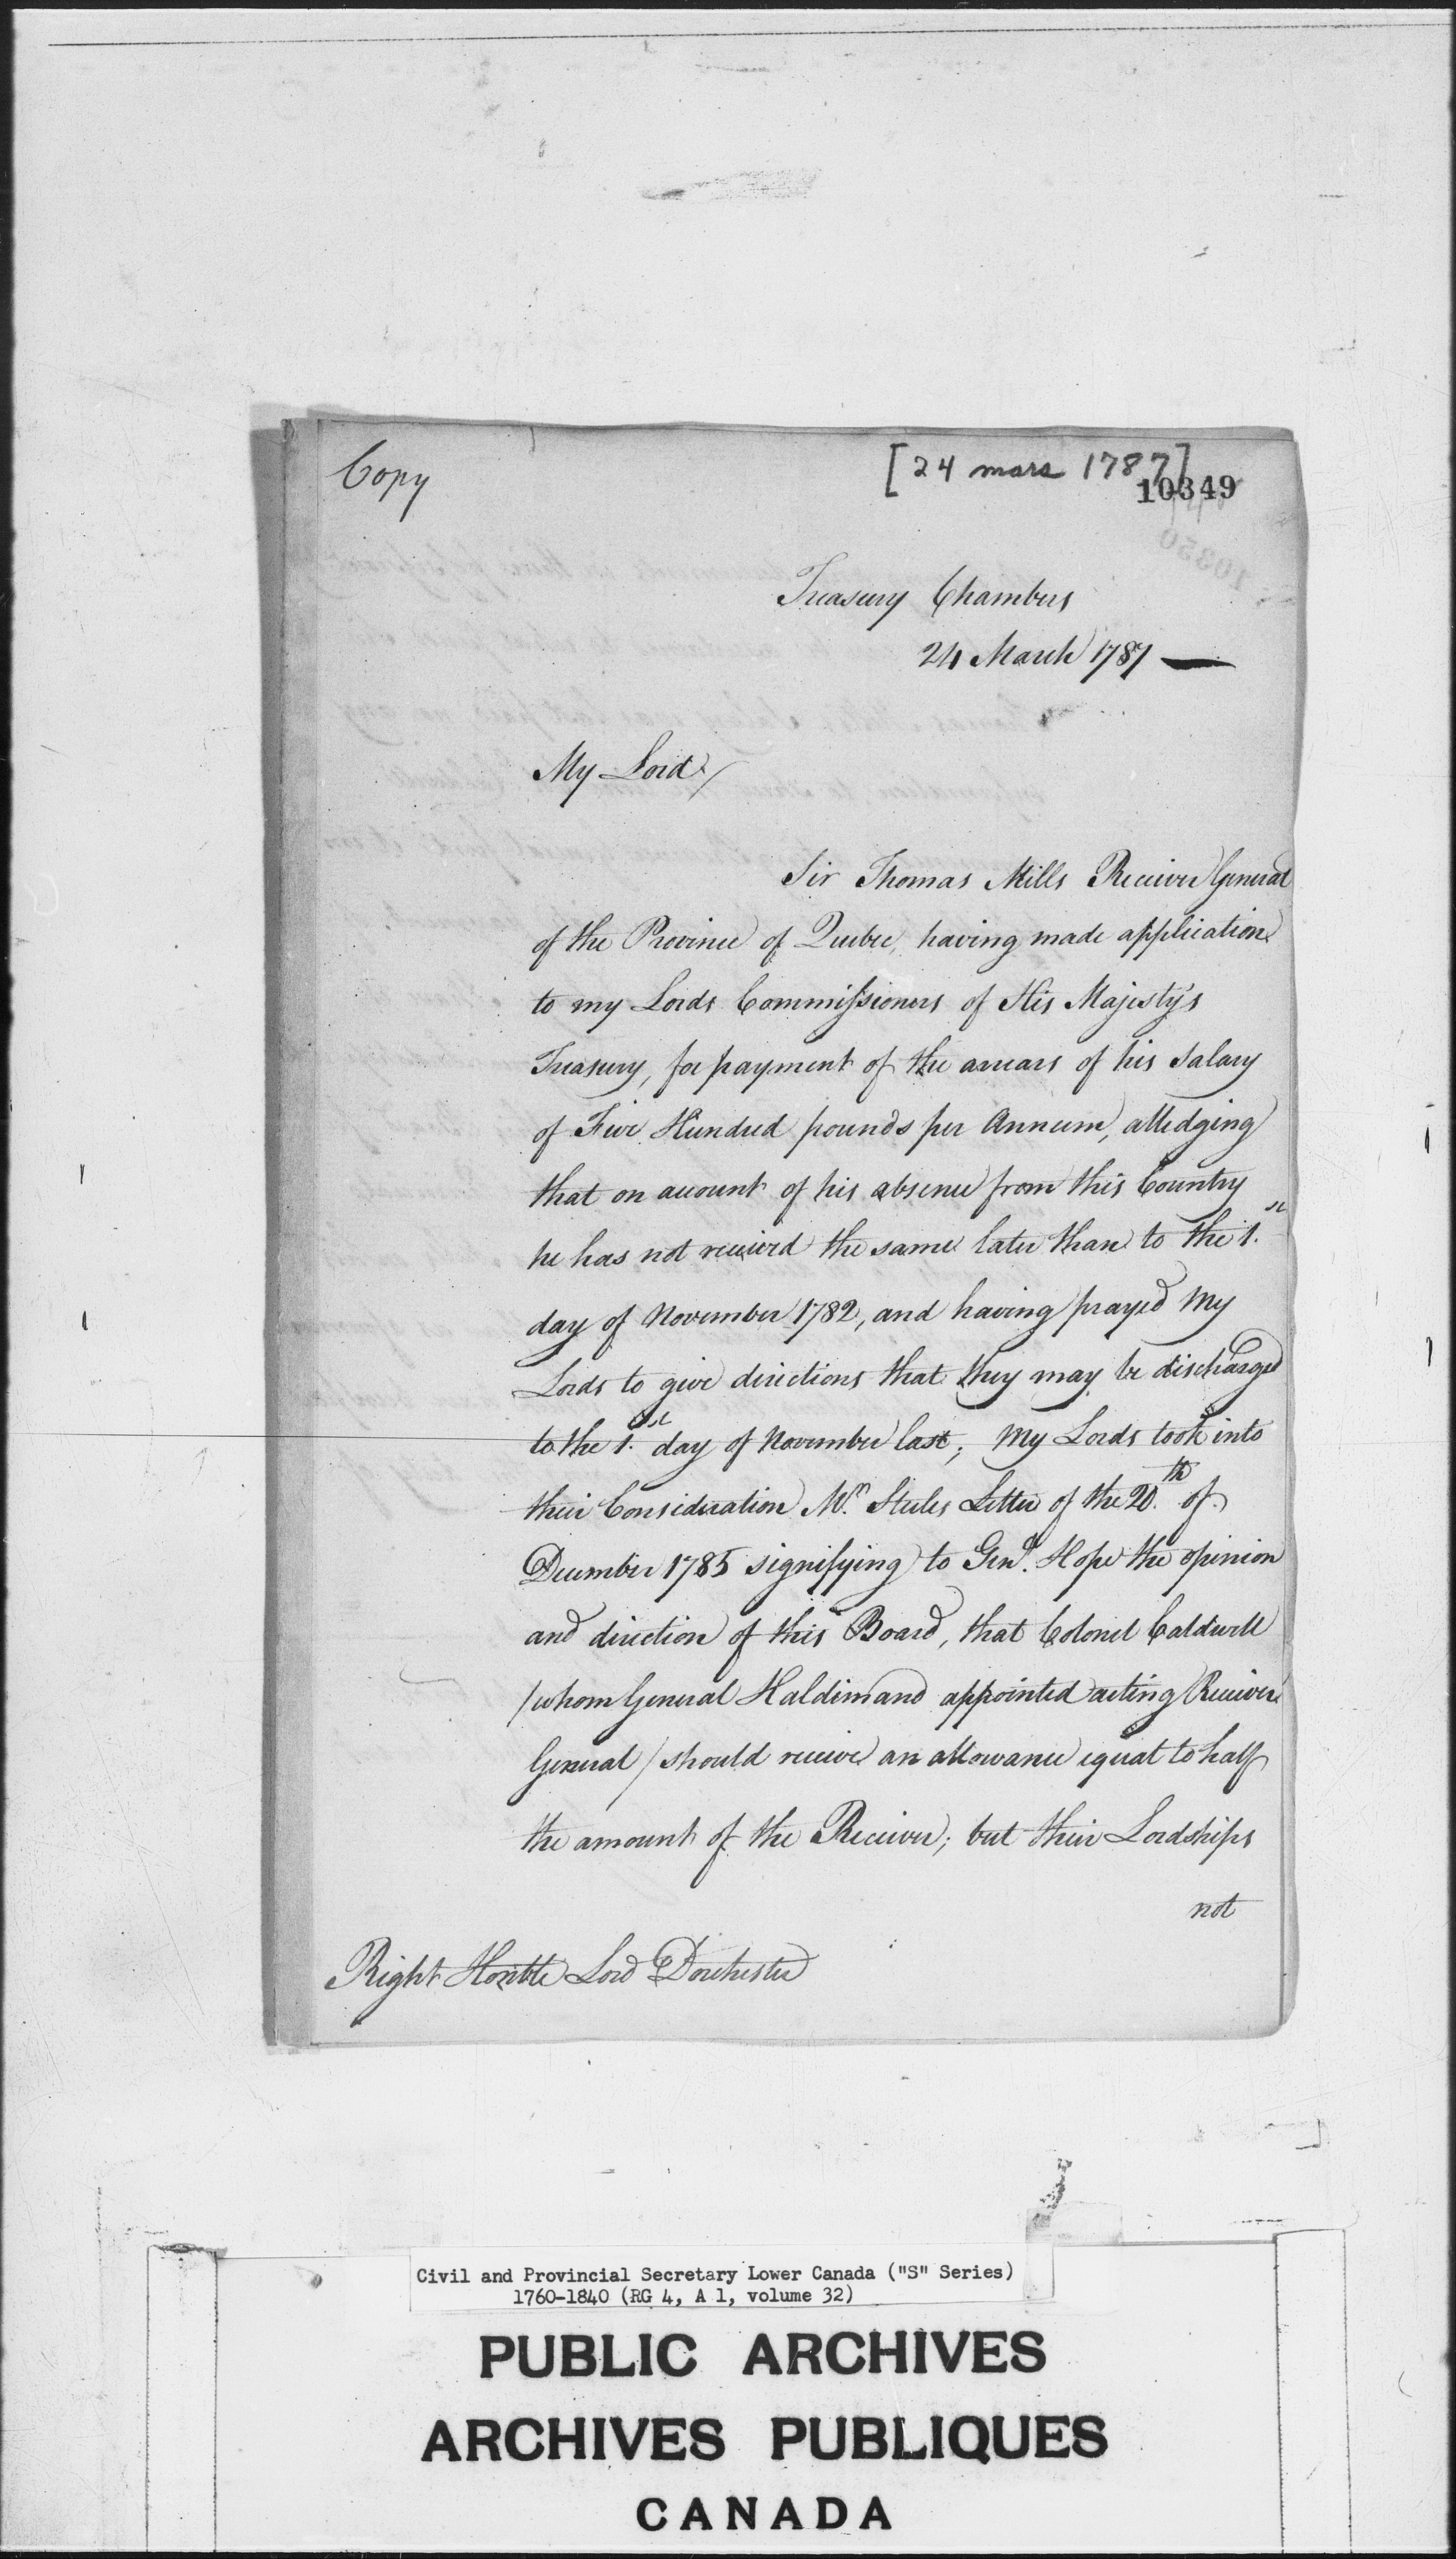 Copy
[24 mars 1787]
10349
Treasury Chambers
24 March 1787 —
My Lord /
Sir Thomas Mills Receiver General
of the Province of Quebec, having made application
to my Lords Commissioners of His Majesty's
Treasury, for payment of the arrears of his Salary
of Five Hundred pounds per Annum, alledging
that on account of his absence from this Country
he has not received the same later than to the 1.st
day of November 1782, and having prayed My
Lords to give directions that they may be discharged
to the 1.st day of November last; My Lords took into
their Consideration Mr. Steeles Letter of the 20.th of
December 1785 signifying to Genl. Hope the opinion
and direction of this Board, that Colonel Caldwell
/whom General Haldimand appointed acting Receiver
General/ should receive an allowance equal to half
the amount of the Receiver; but their Lordships
not
Right Honble Lord Dorchester
Civil and Provincial Secretary Lower Canada ("S" Series)
1760-1840 (RG 4, A 1, volume 32)
PUBLIC ARCHIVES
ARCHIVES PUBLIQUES
CANADA